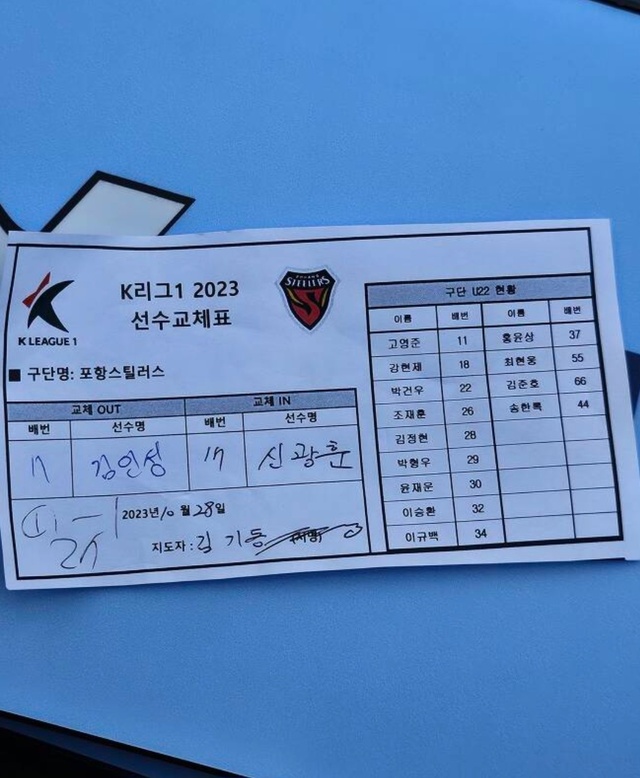 K리그1 2023
선수교체표
K LEAGUE 1
STEELERS
■ 구단명: 포항스틸러스
교체 OUT 교체 IN
배번 선수명 배번 선수명
김인성 17 신광훈
2023년 10월 28일
지도자: 김기동 (서명)
구단 U22 현황
이름 배번 이름 배번
고영준 11 홍윤상 37
강현제 18 최현웅 55
박건우 22 김준호 66
조재훈 26 송한록 44
김정현 28
박형우 29
윤재운 30
이승환 32
이규백 34